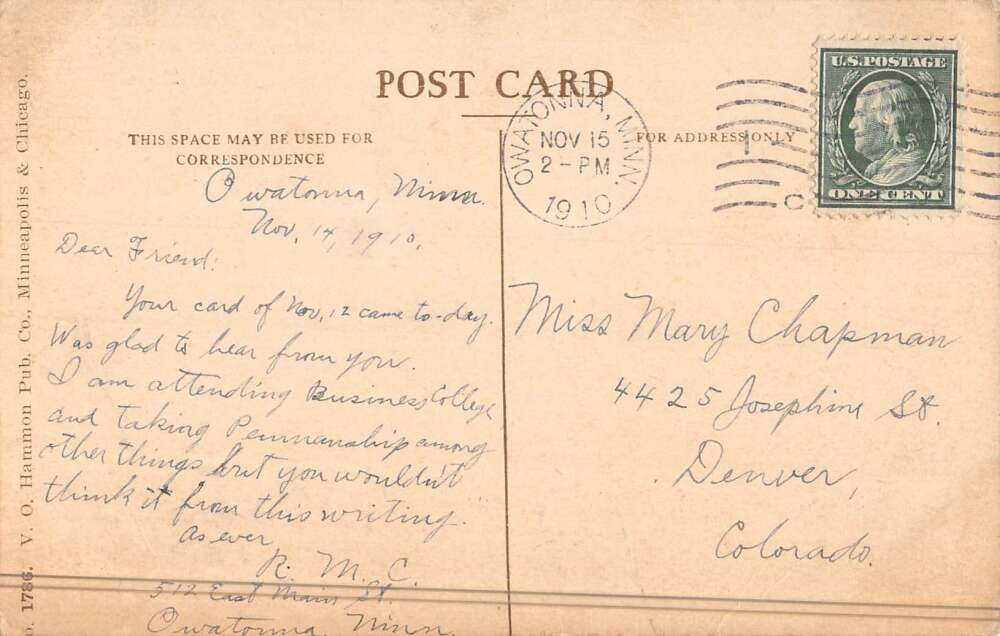 POST CARD
THIS SPACE MAY BE USED FOR
CORRESPONDENCE
FOR ADDRESS ONLY
OWATONNA, MINN.
NOV 15
2 - PM
1910
1
C
U.S. POSTAGE
ONE CENT
Owatonna, Minn.
Nov. 14, 1910.
Dear Friend:
Your card of Nov. 12 came to-day.
Was glad to hear from you.
I am attending Business College
and taking Penmanship among
other things but you wouldn't
think it from this writing.
As ever,
R. M. C.
512 East Main St.
Owatonna, Minn.
Miss Mary Chapman
4425 Josephine St.
Denver,
Colorado.
o. 1786. V. O. Hammon Pub. Co., Minneapolis & Chicago.